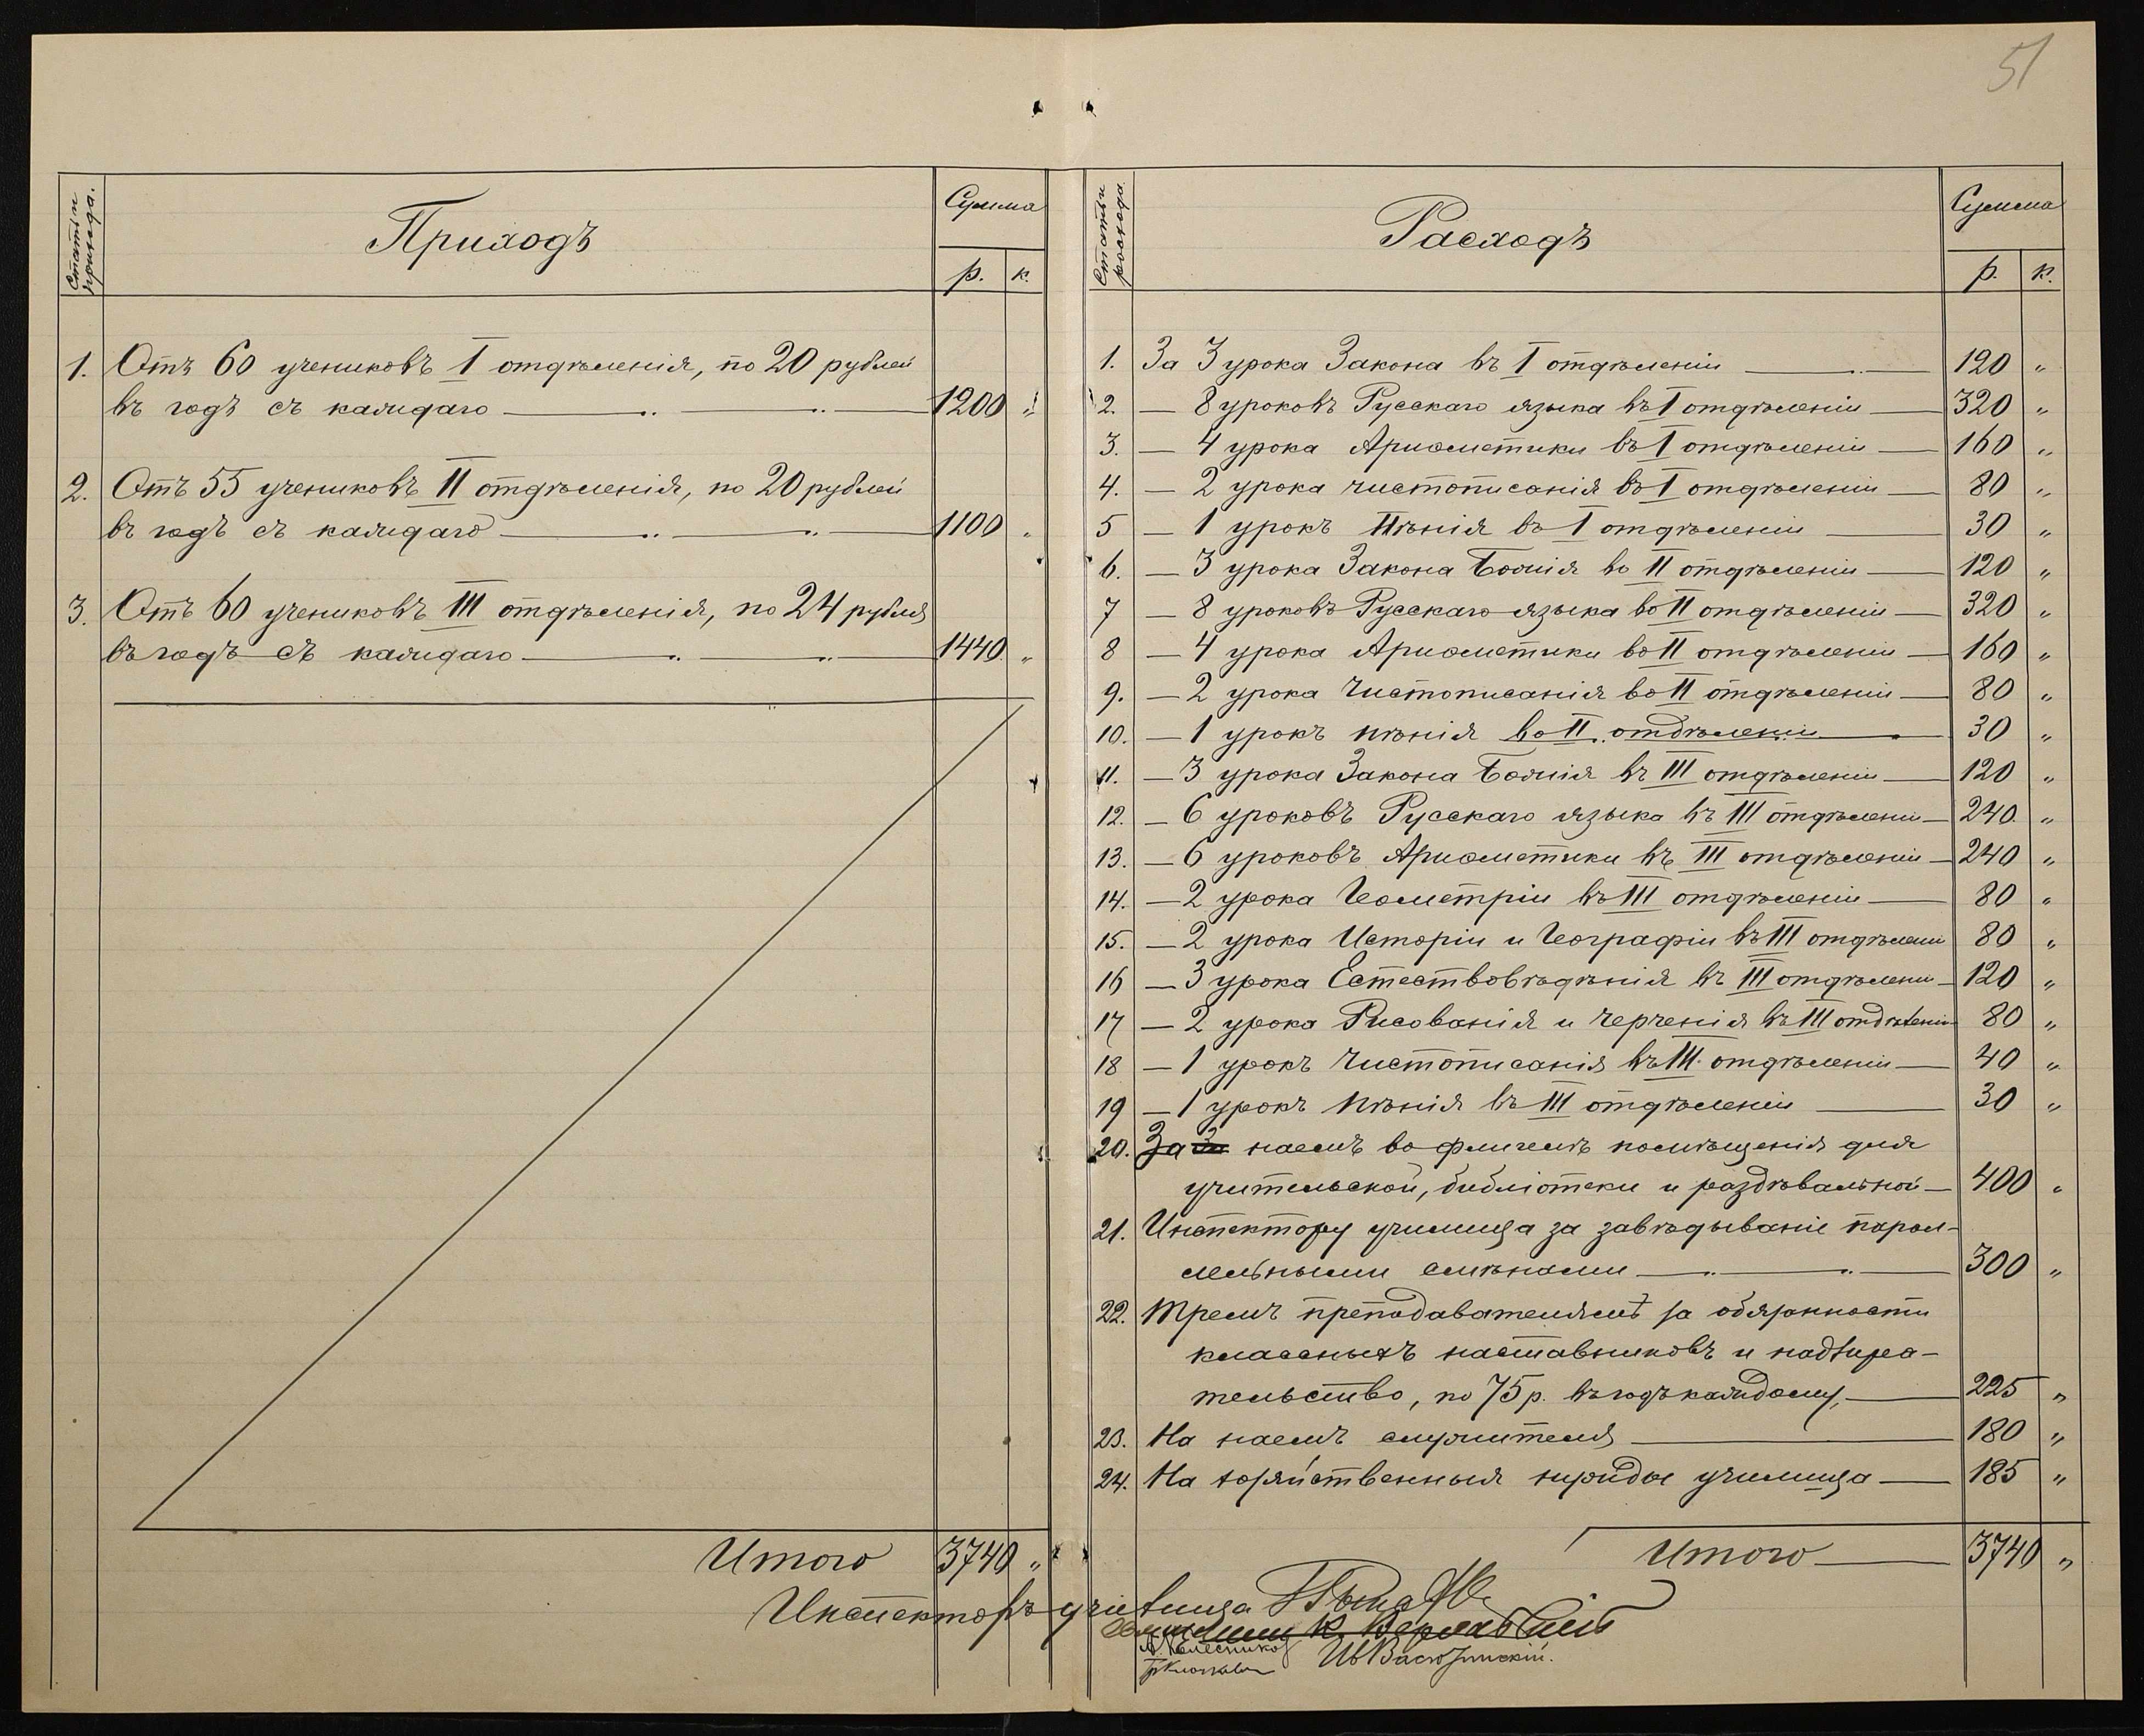 51
Статьи прихода.
Приходъ
Сумма
р. к.
1. Отъ 60 учениковъ I отдѣленія, по 20 рублей
въ годъ съ каждаго 1200 "
2. Отъ 55 учениковъ II отдѣленія, по 20 рублей
въ годъ съ каждаго 1100 "
3. Отъ 60 учениковъ III отдѣленія, по 24 рубля
въ годъ съ каждаго 1440 "
Итого 3740 "
Статьи расхода.
Расходъ
Сумма
р. к.
1. За 3 урока Закона въ I отдѣленіи 120 "
2. — 8 уроковъ Русскаго языка въ I отдѣленіи — 320 "
3. — 4 урока Ариѳметики въ I отдѣленіи — 160 "
4. — 2 урока чистописанія въ I отдѣленіи — 80 "
5 — 1 урокъ Пѣнія въ I отдѣленіи — 30 "
6. — 3 урока Закона Божія во II отдѣленіи — 120 "
7 — 8 уроковъ Русскаго языка во II отдѣленіи — 320 "
8 — 4 урока Ариѳметики во II отдѣленіи — 160 "
9. — 2 урока Чистописанія во II отдѣленіи — 80 "
10. — 1 урокъ пѣнія во II отдѣленіи — 30 "
11. — 3 урока Закона Божія въ III отдѣленіи — 120 "
12. — 6 уроковъ Русскаго языка въ III отдѣлении — 240 "
13. — 6 уроковъ Ариѳметики въ III отдѣленіи — 240 "
14. — 2 урока Геометріи въ III отдѣленіи — 80 "
15. — 2 урока Исторіи и Географіи въ III отдѣлени 80 "
16 — 3 урока Естествовѣдѣнія въ III отдѣлени — 120 "
17 — 2 урока Рисованія и черченія въ III отдѣленіи 80 "
18 — 1 урокъ Чистописанія въ III отдѣленіи — 40 "
19 — 1 урокъ Пѣнія въ III отдѣленіи — 30 "
20. За наемъ во флигелѣ помѣщенія для
учительской, библіотеки и раздѣвальной — 400 "
21. Инспектору училища за завѣдываніе парал-
лельными смѣнами — 300 "
22. Тремъ преподавателямъ за обязанности
классныхъ наставниковъ и надзира-
тельство, по 75 р. въ годъ каждому, — 225 "
23. На наемъ служителя — 180 "
24. На хозяйственныя нужды училища — 185 "
Итого — 3740 "
Инспекторъ училища
А. Колесников